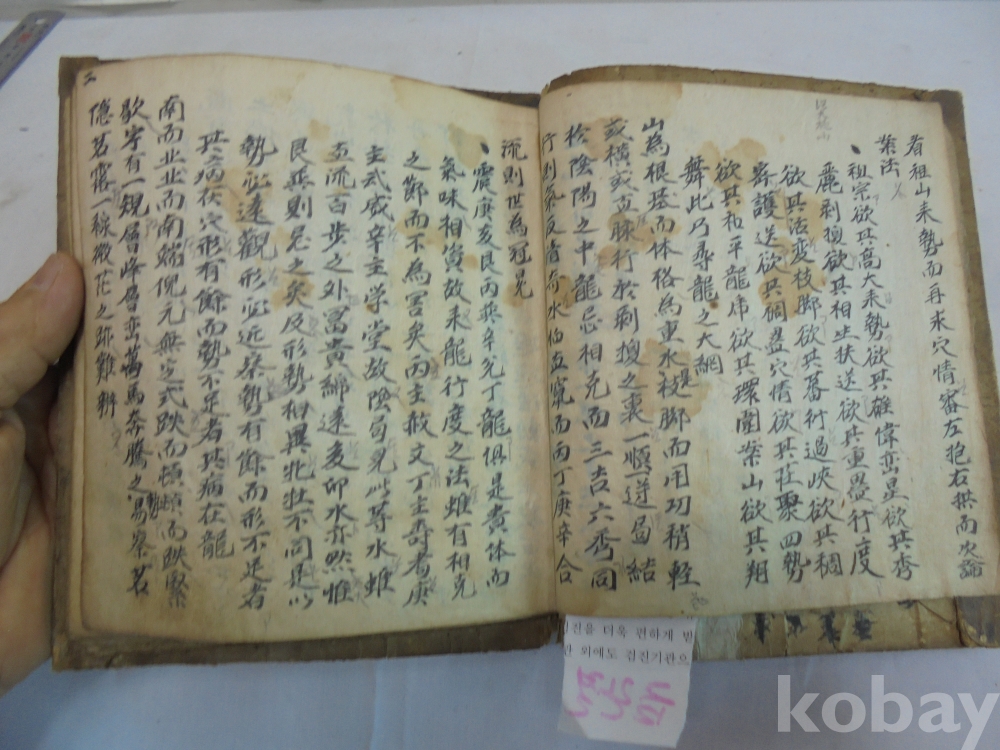 看祖山来勢而再来穴情審左抱右拱而次論
案法
祖宗欲其高大来勢欲其雄偉峦星欲其秀
麗剥換欲其相生扶送欲其重疊行度
欲其活変枝脚欲其蕃行過峽欲其稠
密護送欲其稠疊穴情欲其荘聚四勢
欲其和平龍虎欲其環圍案山欲其翔
舞此乃尋龍之大綱
山為根基而体格為重水枝脚而用功稍軽
或横或立脉行於剥換之裏一順逆局結
於陰陽之中龍忌相克而三吉六秀同
行則氣反清奇水怕直竄而丙丁庚辛合
流則世為冠冕
震庚亥艮丙巽辛兌丁龍俱是貴体而
氣味相資故来龍行度之法雖有相克
之節而不為害矣丙主赦文丁主壽者庚
主武威辛主学堂故陰局見此等水雖
直流百步之外冨貴綿遠亥卯水亦然惟
艮巽則忌之矣及形勢相異牝牡不同是以
勢 遠觀形 近察勢有餘而形不足者
其病在穴形有餘而勢不足者其病在龍
南而北北而南端倪元無定式跌而頓頓而跌緊
歇字有一規層峰層峦萬馬奔騰之局易察若
隱若露一線微茫之跡難辨
검진을 더욱 편하게 받
관 외에도 검진기관으
kobay